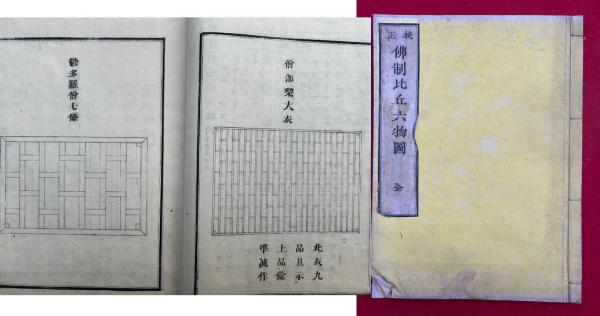 校正
佛制比丘六物圖
全
僧伽梨大衣
此衣九
品且示
上品餘
準減作
欝多羅僧七條